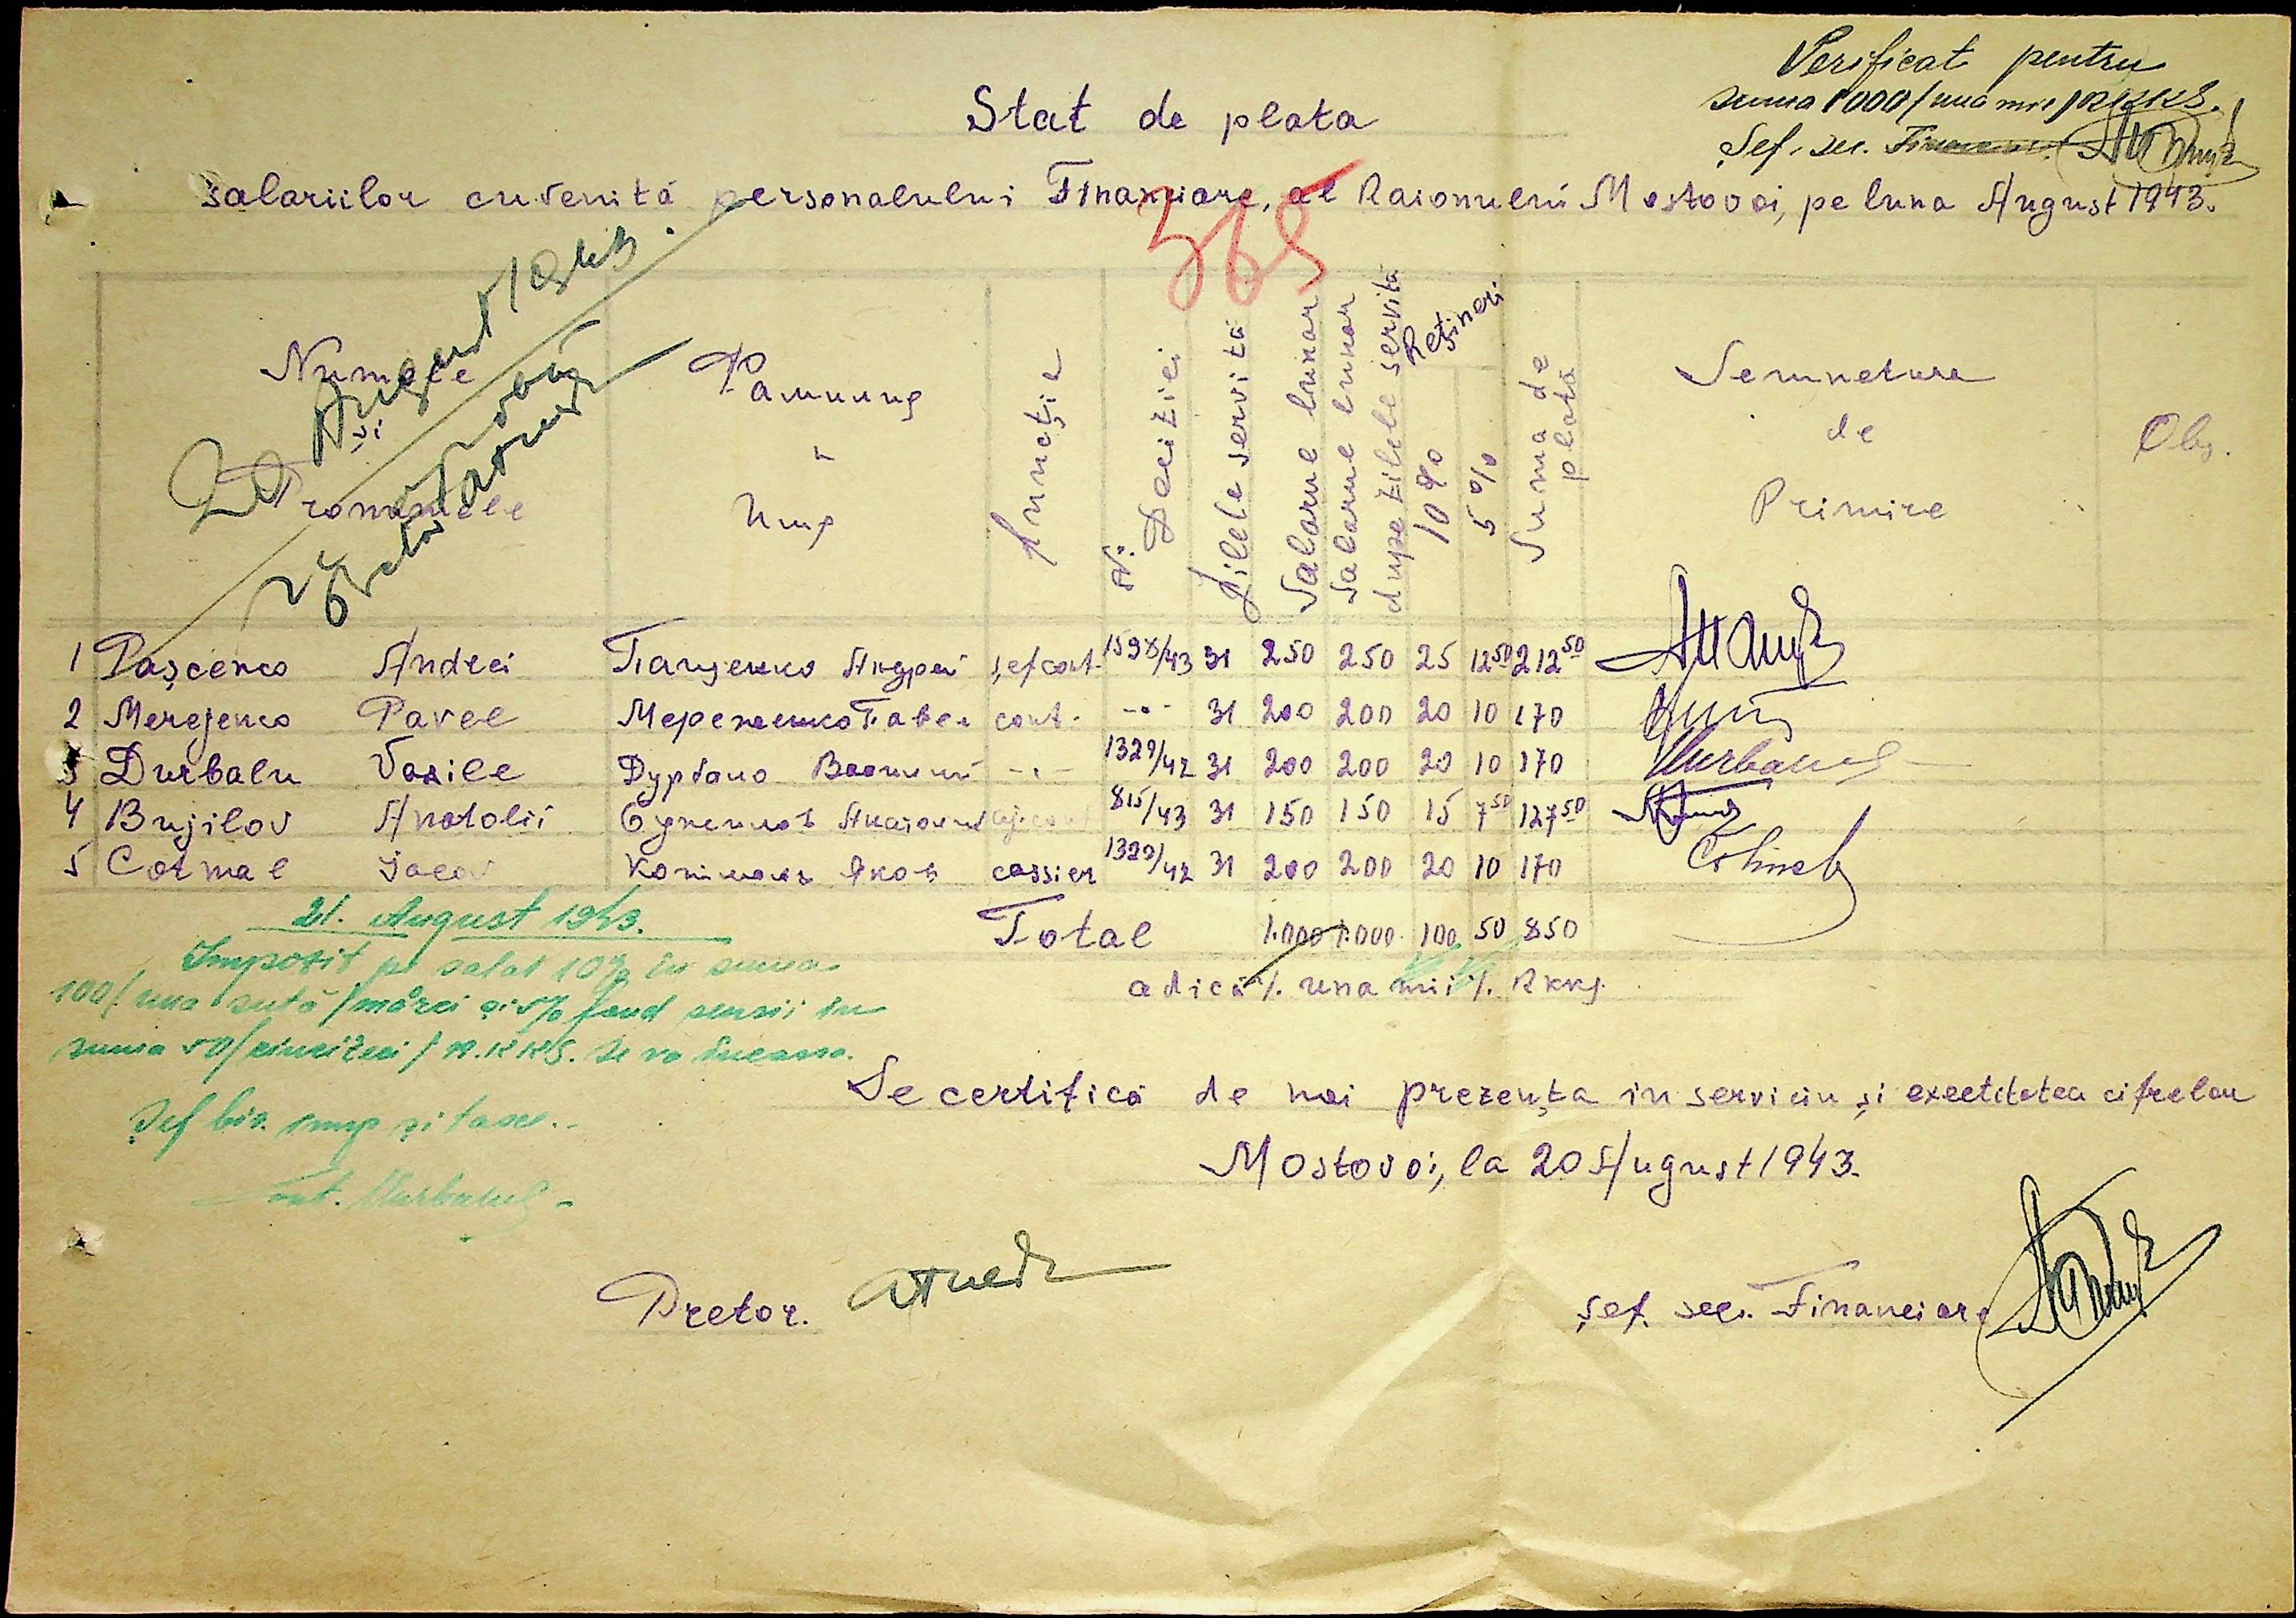 Verificat pentru
suma 1000/una mie/ RKKS.
Șef. sec.
Stat de plata
salariilor cuvenită personalului Financiare, al Raionului Mostovoi, pe luna August 1943.
365
August 1943
Numele și Pronumele Фамилия и Имя Funcția Nr. Deciziei Zilele servită Salarue lunar Salarue lunar dupe zilele servită Rețineri 10% 5% Suma de plată Semnetura de Primire Obs.
1 Pașcenco Andrei Пащенко Андрей șef cont. 1598/43 31 250 250 25 12 50 212 50
2 Merejenco Pavel Мереженко Павел cont. -"- 31 200 200 20 10 170
3 Durbalu Vasile Дурбало Василий -"- 1329/42 31 200 200 20 10 170
4 Bujilov Anatolii Бужилов Анатолий aj. cont 815/43 31 150 150 15 7 50 127 50
5 Cotmal Iacov Котмаль Яков cassier 1329/42 31 200 200 20 10 170
Total 1.000 1.000 100 50 850
adică /. una mii /. Rkks.
21. August 1943.
Impozit pe salar 10% în suma
100/una sută/mărci și 5% fond pensii în
suma 50/cincizeci/ R.K.K.S. se va încassa.
Șef bir. imp și taxe.
Cont.
Se certifică de noi prezența in serviciu și exectitatea cifrelor
Mostovoi, la 20 August 1943.
Pretor.
Șef. sec. Financiare